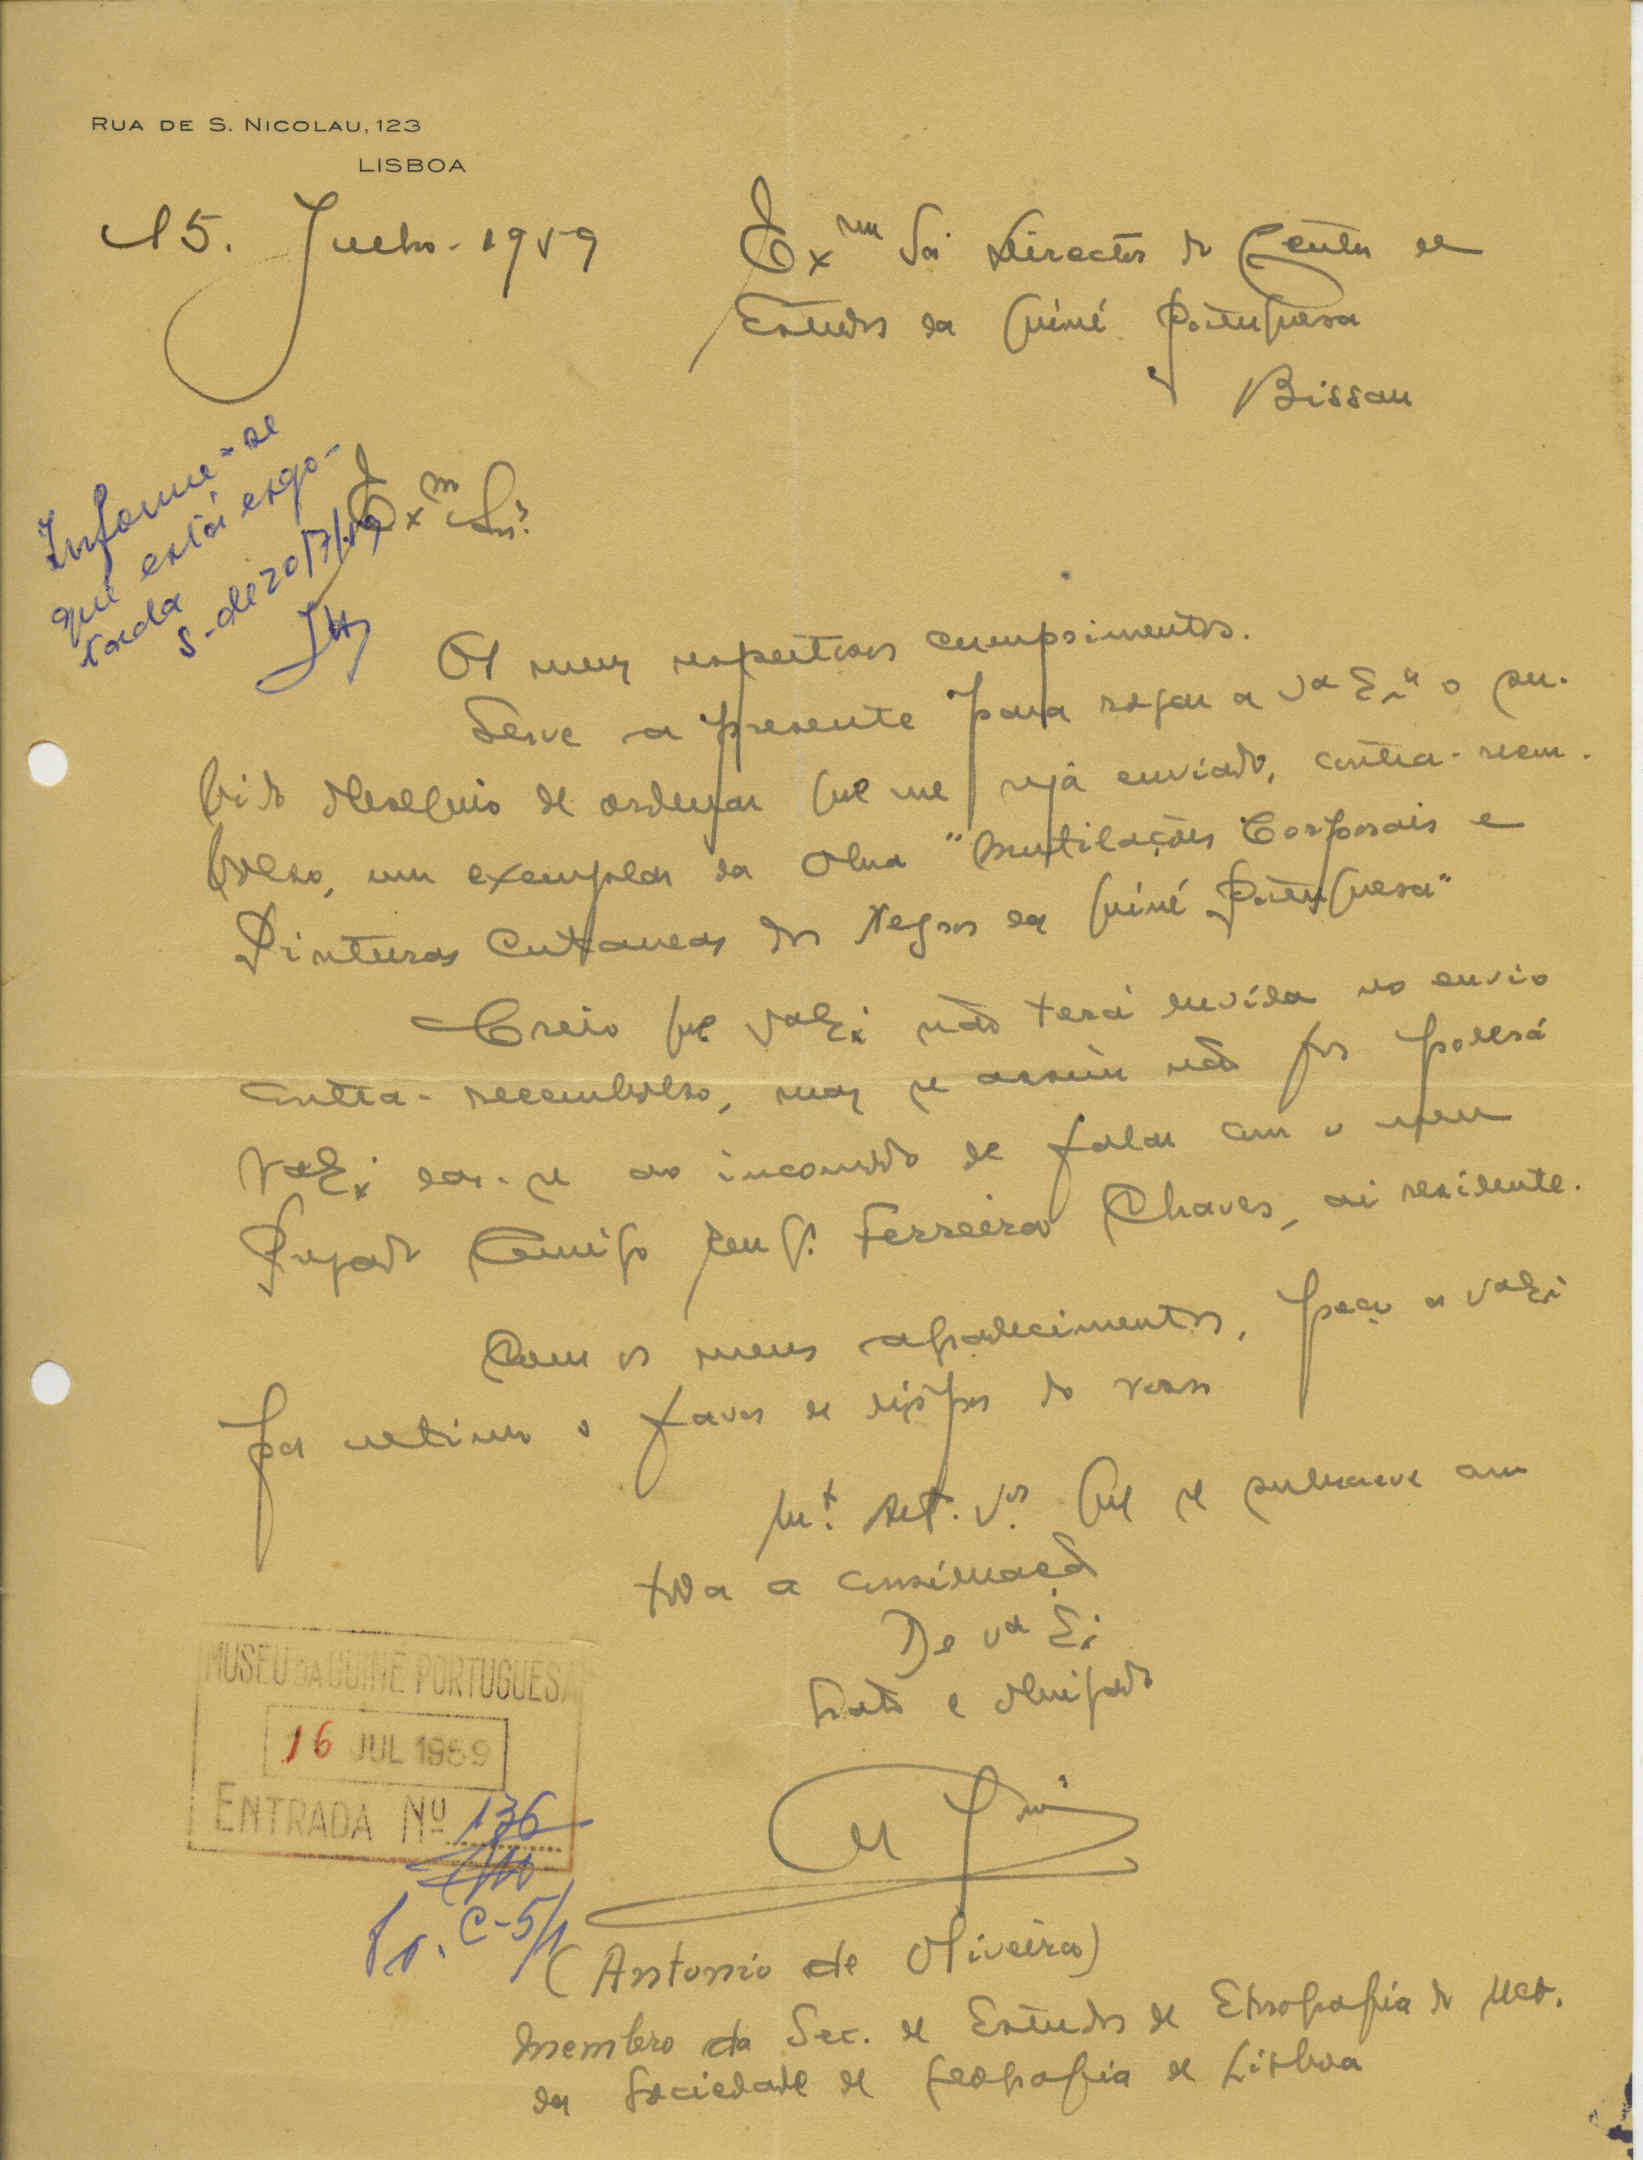 RUA DE S. NICOLAU, 123
LISBOA
15. Julho - 1959
Exmo Snr Director do Centro de
Estudos da Guiné Portuguesa
Bissau
Informe-se
que está esgo-
tada
S. de 20/7/59
Exmo Snr.
Os meus respeitosos cumprimentos.
Serve a presente para rogar a Va Exa o su-
bido obsequio de ordenar que me seja enviado, contra-reem-
bolso, um exemplar da obra "Mutilações Corporais e
Pinturas Cutaneas dos Negros da Guiné Portuguesa"
Creio que Va Ex. não terá duvida no envio
contra-reembolso, mas se assim não for poderá
Va Ex. dar-se ao incomodo de falar com o meu
Prezado Amigo Eng. Ferreira Chaves, aí residente.
Com os meus agradecimentos, peço a Va Ex.
por ultimo o favor de dispor do
Mt. Att. Vor. que se subscreve com
toda a consideração
De Va Ex.
Grato e obrigado
(Antonio de Oliveira)
Membro da Sec. de Estudos de Etnografia do Ult.
da Sociedade de Geografia de Lisboa
MUSEU DA GUINÉ PORTUGUESA
16 JUL 1959
ENTRADA Nº 136
C-5/1